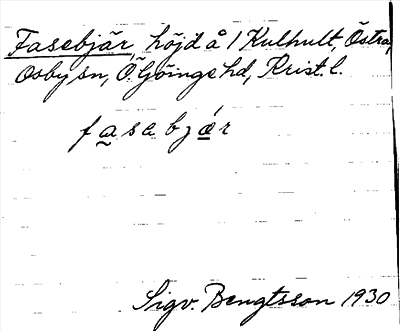 Fasebjär, höjd å 1 Kulhult, Östra,
Osby sn, Ö. Göinge hd, Krist. l.
fasabjær
Sigv. Bengtsson 1930